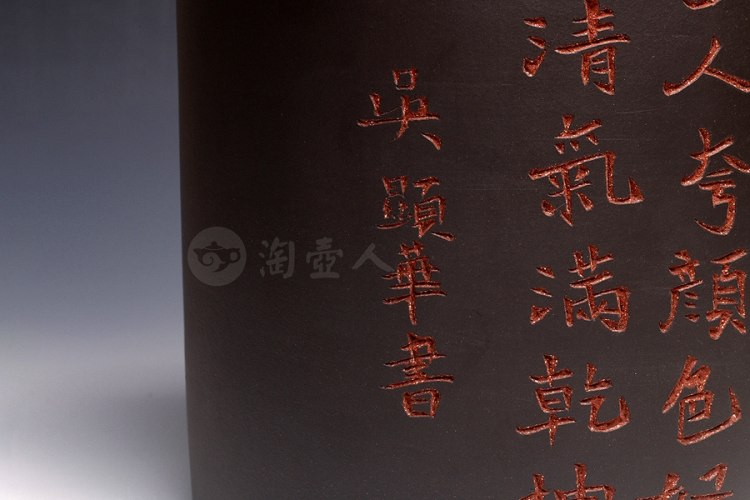 人夸顏色好
清氣滿乾坤
吳顕華書
淘壺人